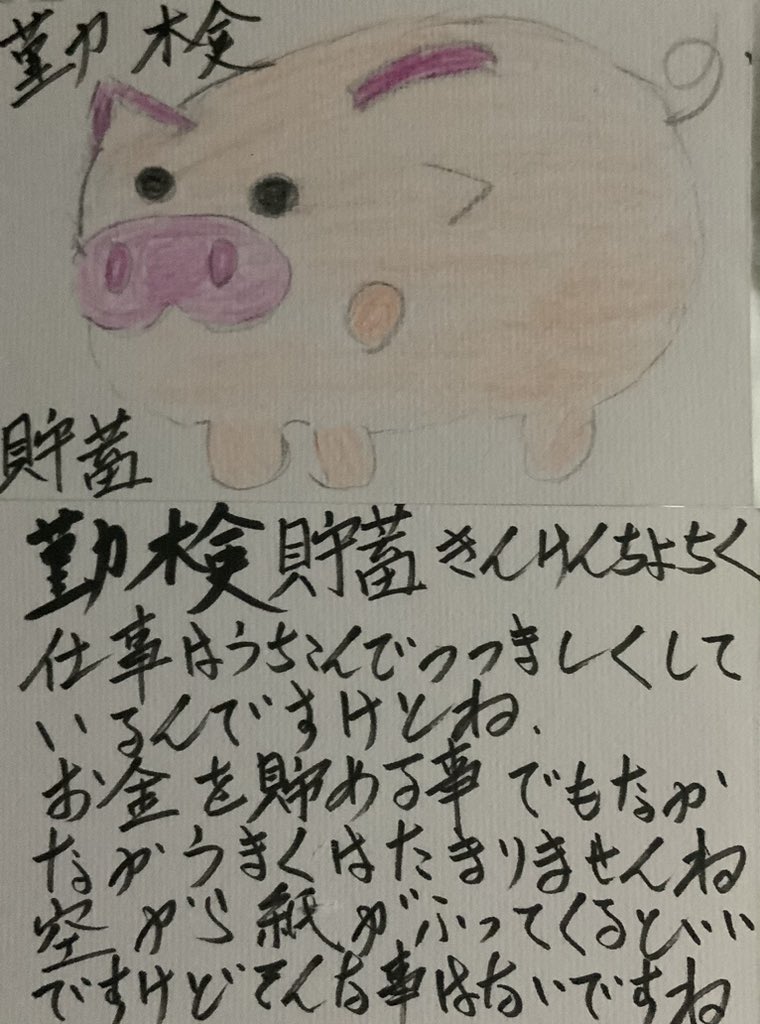 勤検
貯蓄
勤検貯蓄 きんけんちよちく
仕事はうちこんでつつましくして
いるんですけとね、
お金を貯める事でもなか
なかうまくはたまりませんね
空から紙がふってくるといい
ですけどそんな事はないですね